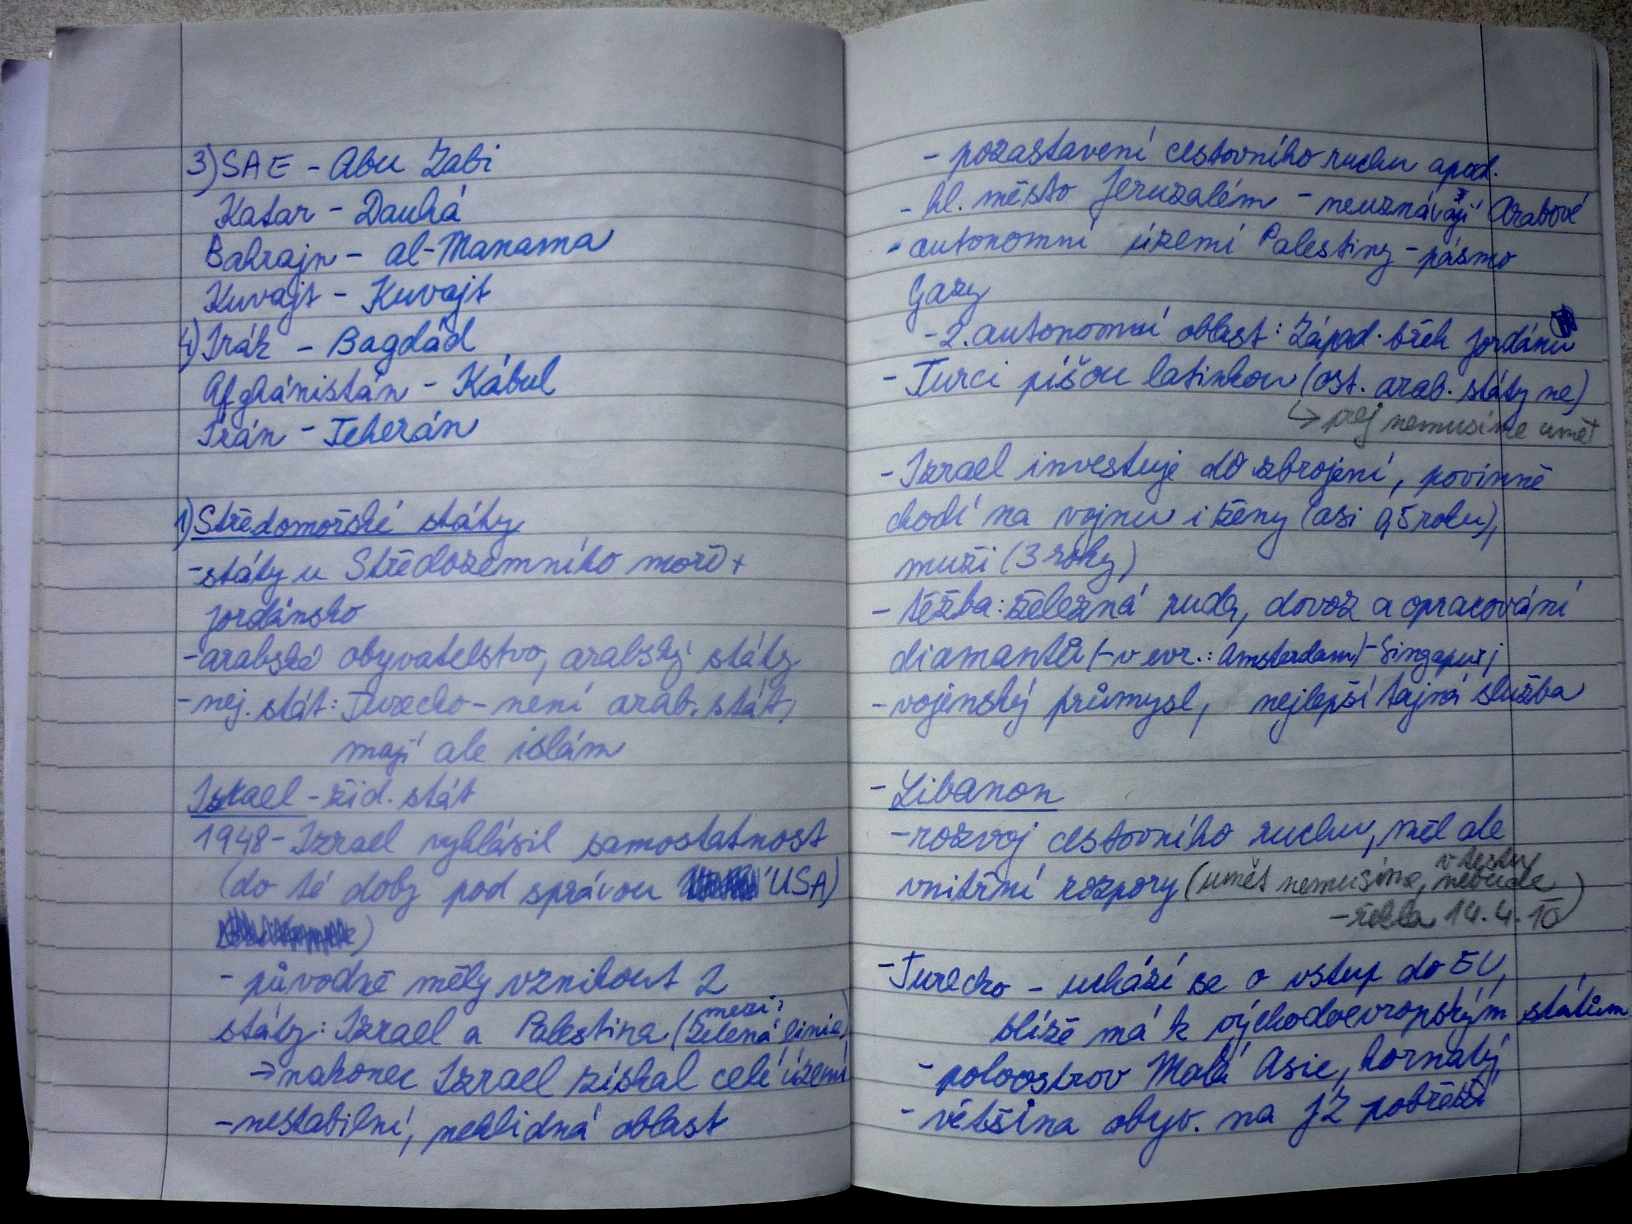 3) SAE - Abu Zabi
Katar - Dauhá
Bahrajn - al-Manama
Kuvajt - Kuvajt
4) Irák - Bagdád
Afghánistán - Kábul
Írán - Teherán
1) Středomořské státy
- státy u Středozemního moře +
Jordánsko
- arabské obyvatelstvo, arabský státy
- nej. stát: Turecko - není arab. stát,
mají ale islám
Izrael - žid. stát
1948 - Izrael vyhlásil samostatnost
(do té doby pod správou USA)
- původně měly vzniknout 2
státy: Izrael a Palestina (mezi: zelená linie)
→ nakonec Izrael získal celé území
- nestabilní, neklidná oblast
- pozastavení cestovního ruchu apod.
- hl. město Jeruzalém - neuznávají Arabové
- autonomní území Palestiny - pásmo
Gazy
- 2. autonomní oblast: Západ. břeh Jordánu
- Turci píšou latinkou (ost. arab. státy ne)
↳ prej nemusíme umět
- Izrael investuje do zbrojení, povinně
chodí na vojnu i ženy (asi 1,5 roku),
muži (3 roky)
- těžba: železná ruda, dovoz a opracování
diamantů (- v evr.: Amsterdam) - Singapur,
- vojenský průmysl, nejlepší tajná služba
- Libanon
- rozvoj cestovního ruchu, měl ale
vnitřní rozpory (umět nemusíme, v testu nebude
- řekla 14.4.10)
- Turecko - uchází se o vstup do EU,
blíže má k východoevropským státům
- poloostrov Malá Asie, hornatý
- většina obyv. na JZ pobřeží